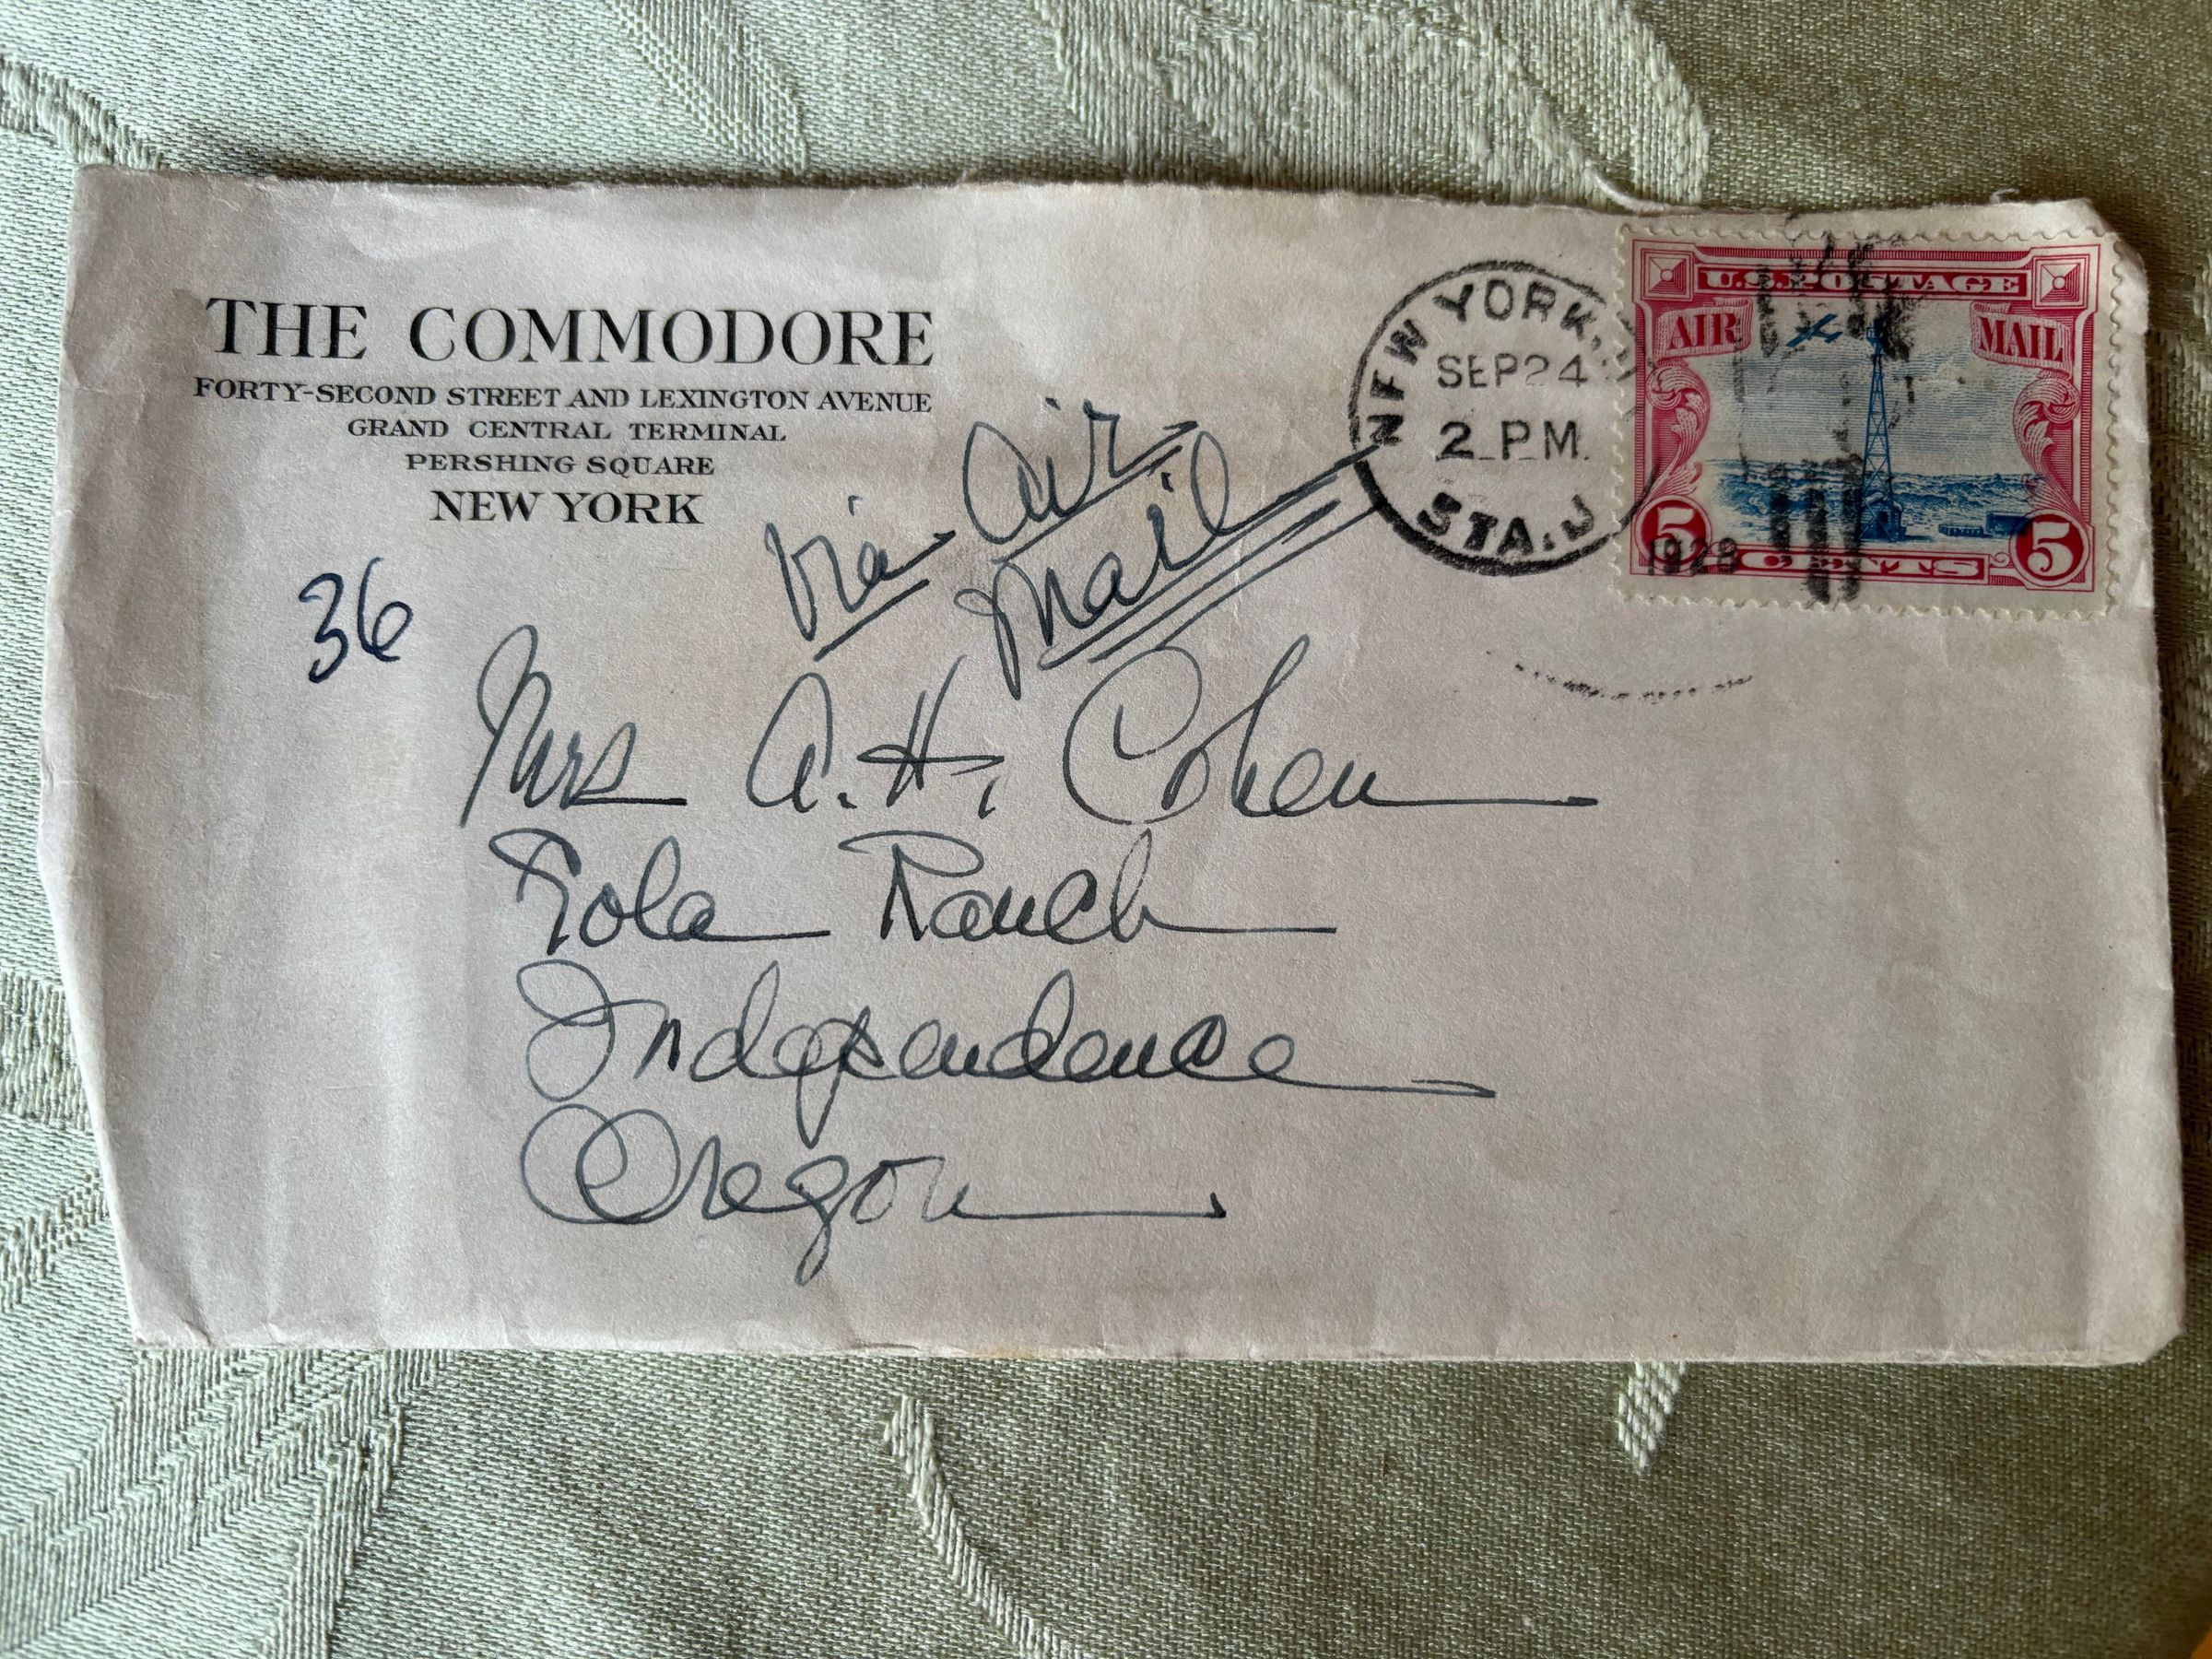 THE COMMODORE
FORTY-SECOND STREET AND LEXINGTON AVENUE
GRAND CENTRAL TERMINAL
PERSHING SQUARE
NEW YORK
NEW YORK,
SEP 24
2 PM
STA. J
1928
U.S. POSTAGE
AIR MAIL
5 CENTS 5
Via Air
Mail
36
Mrs A. H. Cohen
Eola Ranch
Independence
Oregon